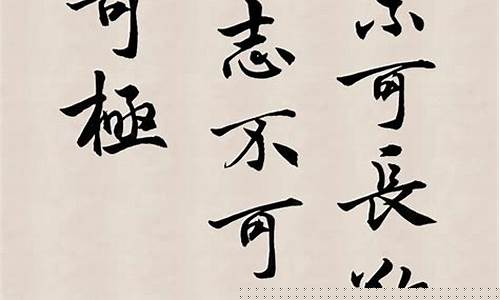 不可長
志不可
可極